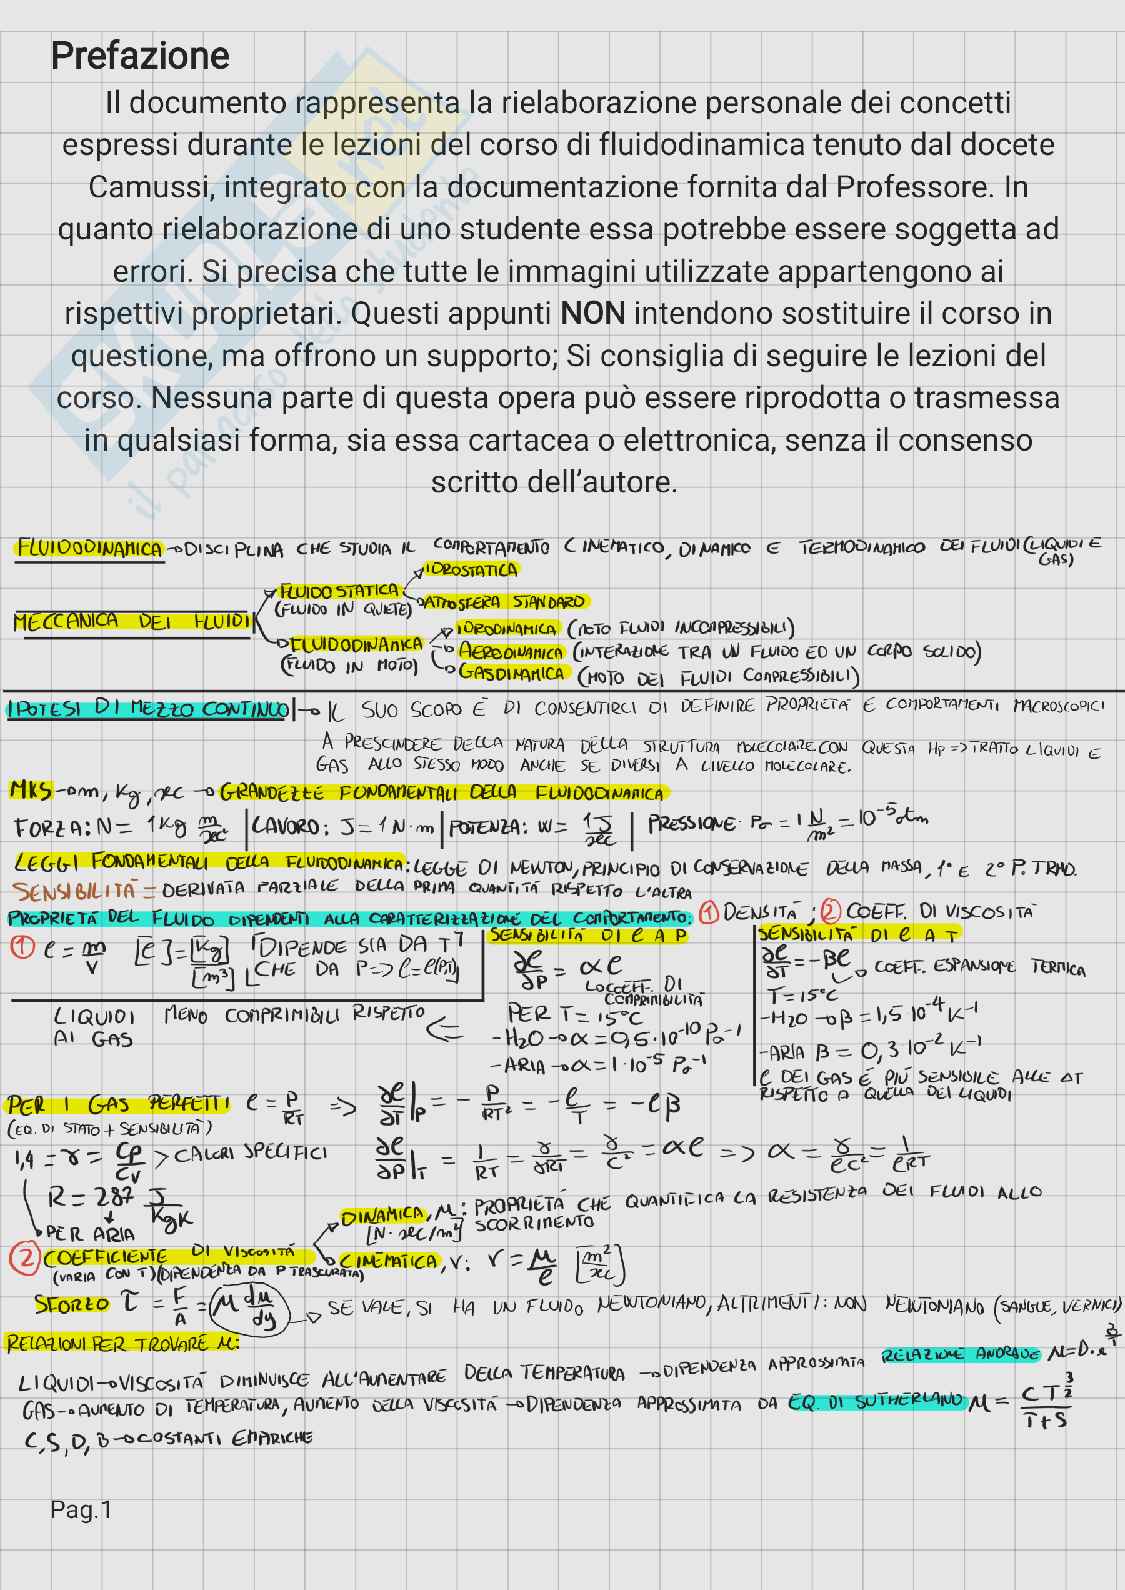 Prefazione
Il documento rappresenta la rielaborazione personale dei concetti
espressi durante le lezioni del corso di fluidodinamica tenuto dal docete
Camussi, integrato con la documentazione fornita dal Professore. In
quanto rielaborazione di uno studente essa potrebbe essere soggetta ad
errori. Si precisa che tutte le immagini utilizzate appartengono ai
rispettivi proprietari. Questi appunti NON intendono sostituire il corso in
questione, ma offrono un supporto; Si consiglia di seguire le lezioni del
corso. Nessuna parte di questa opera può essere riprodotta o trasmessa
in qualsiasi forma, sia essa cartacea o elettronica, senza il consenso
scritto dell'autore.
FLUIDODINAMICA → DISCIPLINA CHE STUDIA IL COMPORTAMENTO CINEMATICO, DINAMICO E TERMODINAMICO DEI FLUIDI (LIQUIDI E GAS)
MECCANICA DEI FLUIDI
FLUIDO STATICA (FLUIDO IN QUIETE)
IDROSTATICA
ATMOSFERA STANDARD
FLUIDODINAMICA (FLUIDO IN MOTO)
IDRODINAMICA (MOTO FLUIDI INCOMPRESSIBILI)
AERODINAMICA (INTERAZIONE TRA UN FLUIDO ED UN CORPO SOLIDO)
GASDINAMICA (MOTO DEI FLUIDI COMPRESSIBILI)
IPOTESI DI MEZZO CONTINUO → IL SUO SCOPO È DI CONSENTIRCI DI DEFINIRE PROPRIETÀ E COMPORTAMENTI MACROSCOPICI
A PRESCINDERE DELLA NATURA DELLA STRUTTURA MOLECOLARE. CON QUESTA HP => TRATTO LIQUIDI E
GAS ALLO STESSO MODO ANCHE SE DIVERSI A LIVELLO MOLECOLARE.
MKS → m, Kg, sec → GRANDEZZE FONDAMENTALI DELLA FLUIDODINAMICA
FORZA: N = 1 Kg m/sec² | LAVORO: J = 1 N · m | POTENZA: W = 1J/sec | PRESSIONE: Pa = 1 N/m² = 10⁻⁵ atm
LEGGI FONDAMENTALI DELLA FLUIDODINAMICA: LEGGE DI NEWTON, PRINCIPIO DI CONSERVAZIONE DELLA MASSA, 1° E 2° P. TRMD.
SENSIBILITÀ = DERIVATA PARZIALE DELLA PRIMA QUANTITÀ RISPETTO L'ALTRA
PROPRIETÀ DEL FLUIDO DIPENDENTI ALLA CARATTERIZZAZIONE DEL COMPORTAMENTO: 1 DENSITÀ; 2 COEFF. DI VISCOSITÀ
1 ρ = m/V [ρ] = [Kg]/[m³] [DIPENDE SIA DA T
CHE DA P => ρ = ρ(P,T)]
LIQUIDI MENO COMPRIMIBILI RISPETTO
AI GAS
SENSIBILITÀ DI ρ A P
∂ρ/∂P = αρ
COEFF. DI
COMPRIMIBILITÀ
PER T = 15°C
- H2O → α = 0,5 · 10⁻¹⁰ Pa⁻¹
- ARIA → α = 1 · 10⁻⁵ Pa⁻¹
SENSIBILITÀ DI ρ A T
∂ρ/∂T = -βρ
COEFF. ESPANSIONE TERMICA
T = 15°C
- H2O → β = 1,5 · 10⁻⁴ K⁻¹
- ARIA β = 0,3 10⁻² K⁻¹
ρ DEI GAS È PIÙ SENSIBILE ALLE ΔT
RISPETTO A QUELLA DEI LIQUIDI
PER I GAS PERFETTI ρ = P/RT => ∂ρ/∂T|P = - P/RT² = - ρ/T = - ρβ
(EQ. DI STATO + SENSIBILITÀ)
1,4 = γ = Cp/Cv > CALORI SPECIFICI ∂ρ/∂P|T = 1/RT = γ/γRT = γ/C² = αρ => α = γ/ρC² = 1/ρRT
R = 287 J/KgK
PER ARIA
2 COEFFICIENTE DI VISCOSITÀ
(VARIA CON T) (DIPENDENZA DA P TRASCURATA)
DINAMICA, μ: PROPRIETÀ CHE QUANTIFICA LA RESISTENZA DEI FLUIDI ALLO
[N · sec/m²] SCORRIMENTO
CINEMATICA, ν: ν = μ/ρ [m²/sec]
SFORZO τ = F/A = μ du/dy → SE VALE, SI HA UN FLUIDO NEWTONIANO, ALTRIMENTI: NON NEWTONIANO (SANGUE, VERNICI)
RELAZIONI PER TROVARE μ:
LIQUIDI → VISCOSITÀ DIMINUISCE ALL'AUMENTARE DELLA TEMPERATURA → DIPENDENZA APPROSSIMATA RELAZIONE ANDRADE μ = D · e^(B/T)
GAS → AUMENTO DI TEMPERATURA, AUMENTO DELLA VISCOSITÀ → DIPENDENZA APPROSSIMATA DA EQ. DI SUTHERLAND μ = C T^(3/2)/T+S
C, S, D, B → COSTANTI EMPIRICHE
Pag.1